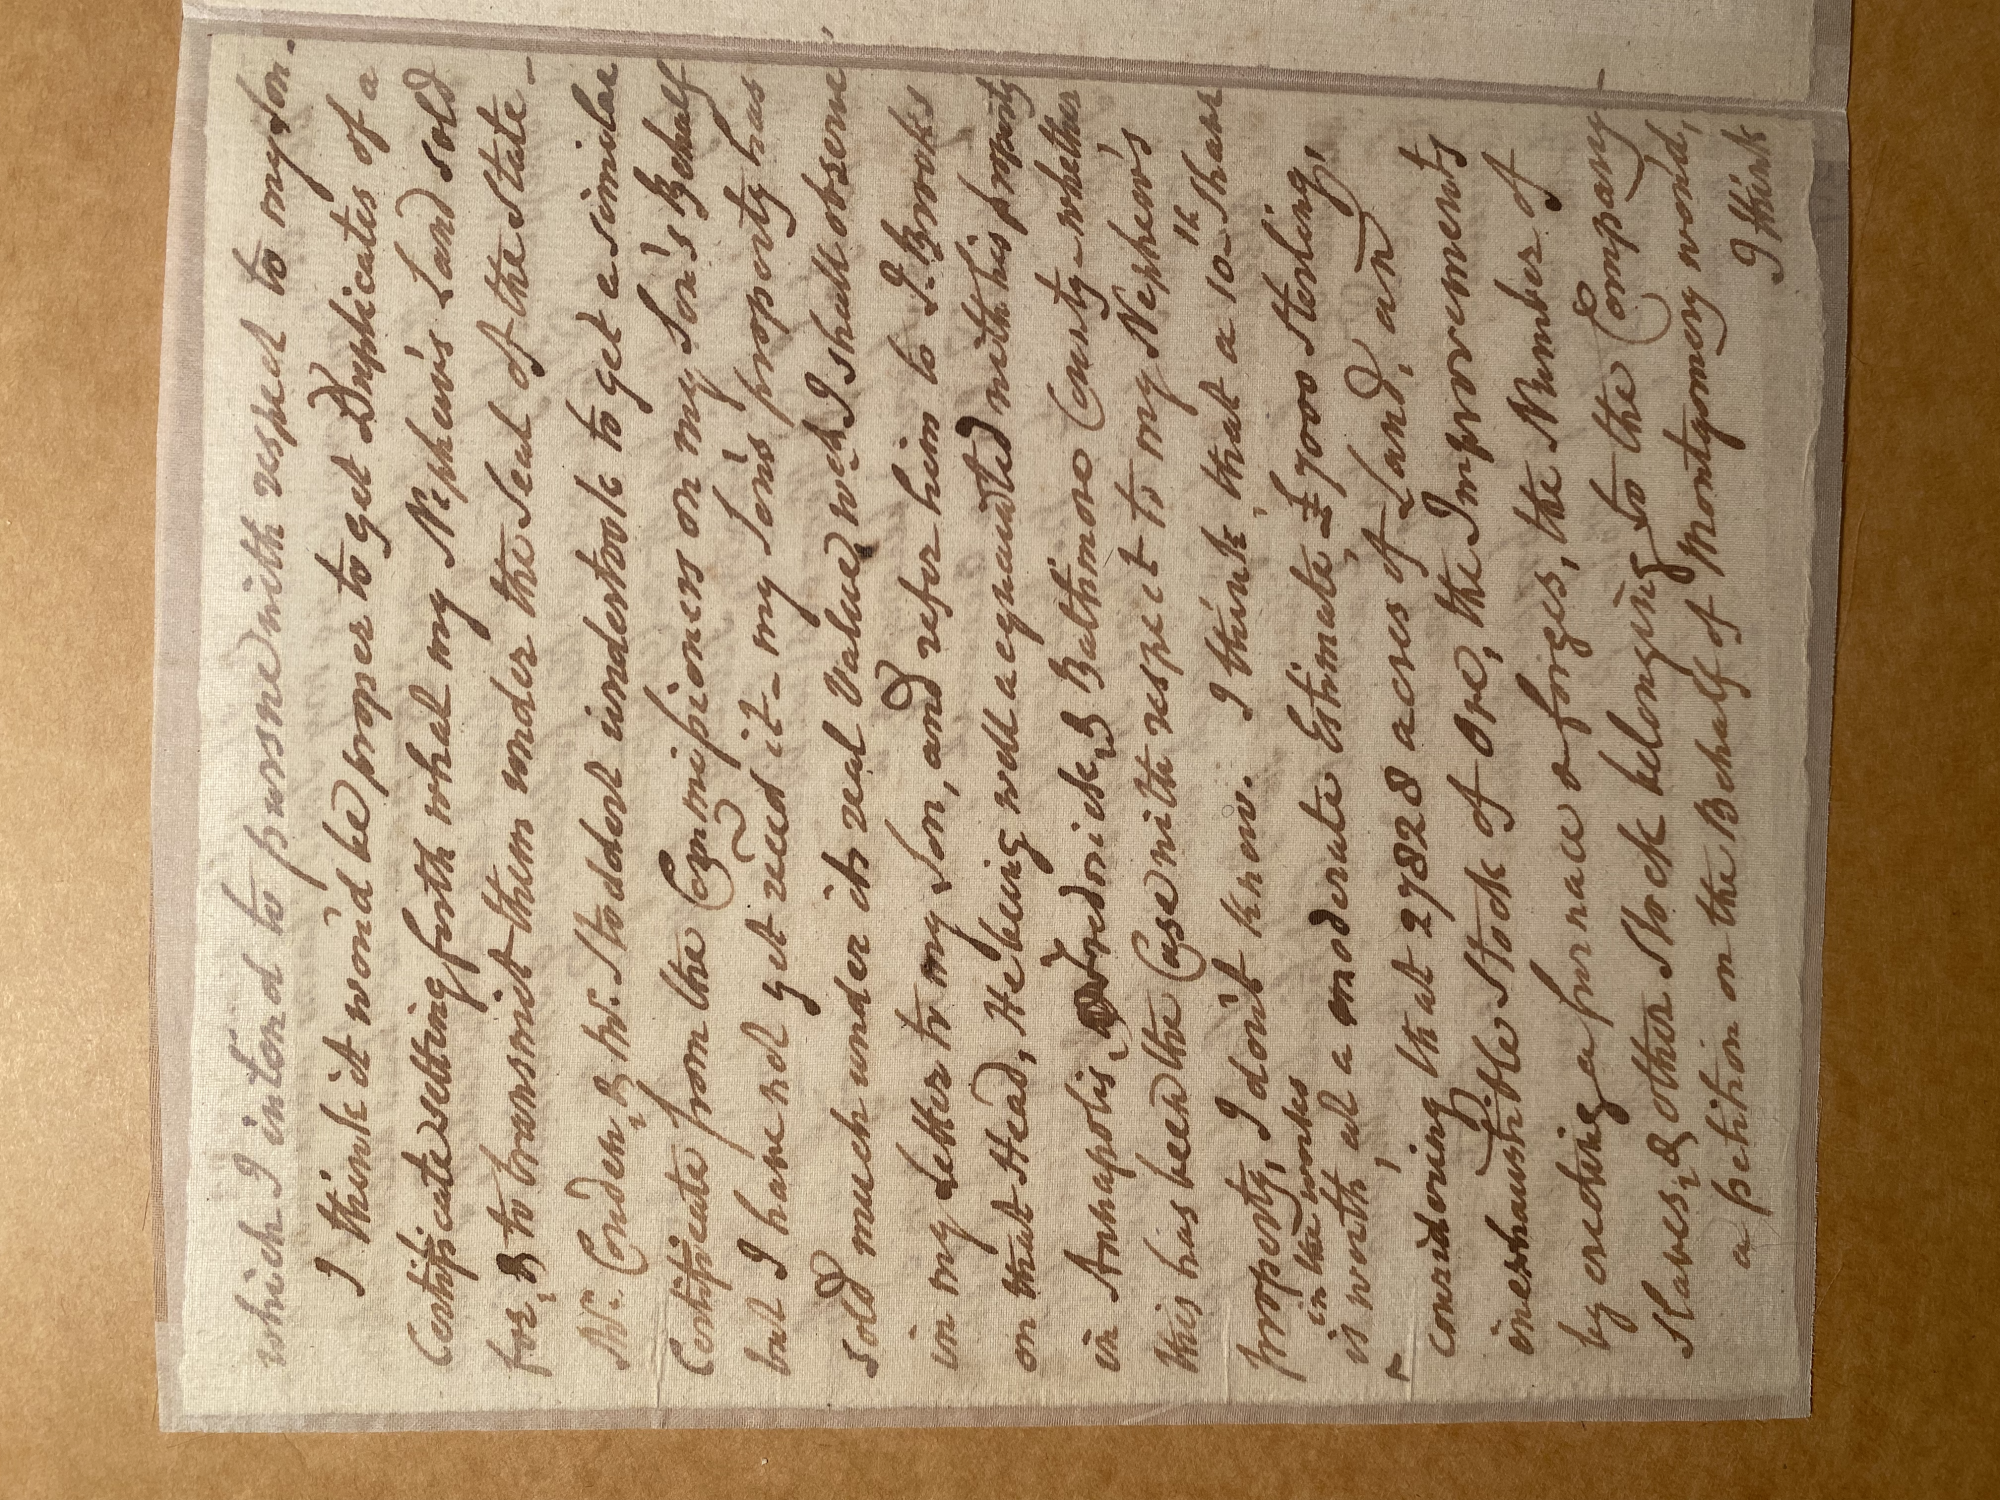 which I intend to pursue with respect to my Son.
I think it wou'd be proper to get Duplicates of a
Certificate setting forth what my Nephew's Land sold
for, & to transmit them under the Seal of the State -
Mr. Conden & Mr. Stoddert undertook to get a similar
Certificate from the Commissioners on my Son's Behalf
but I have not yet rec'd it - my Son's property has
sold much under its real Value wch. I shall observe
in my Letter to my Son, and refer him to J. Brooks
on that Head, He being well acquainted with his property
in Annapolis, Fredrick, & Baltimore County - whether
this has been the Case with respect to my Nephew's
property, I don't know. I think, that a 10th Share
in the works
is worth, at a moderate Estimate, £ 7000 Sterling,
considering that 27828 acres of Land, an
inexhaustible Stock of Ore, the Improvements
by erecting a furnace & forges, the Number of
Slaves, & other Stock belonging to the Company -
a petition on the Behalf of Montgomery wou'd,
I think